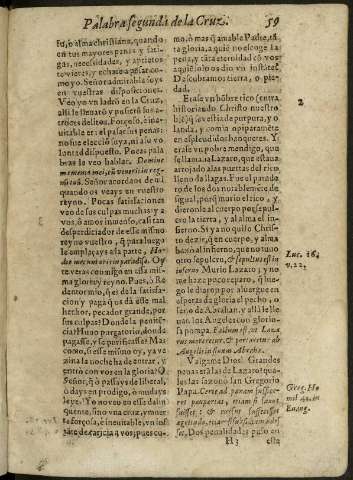 Palabra segunda de la Cruz. 59
tu, o alma christiana, quando
en tus mayores penas y fati-
gas, necessidades, y aprietos
te vieres, y echate a pésar co-
mo yo. Señor admirable soys
en vuestras disposiciones.
Veo yo vn ladrō en la Cruz,
alli le lleuarō y pusierō sus a-
troces delitos. Forçoso, è ine-
uitable era el passar sus penas:
no fue elecció suya, ni a su vo-
lontad dispuesto. Pocas pala-
bras le veo hablar. Domine
memento mei, cū veneris in reg-
num tuū. Señor acordaos de mi
quando os veays en vuestro
reyno. Pocas satisfaciones
veo de sus culpas muchas: y a
vos, ò amor inmenso, casi tan
desperdiciador de esse mismo
reyno vuestro, q̃ para luego
le emplaçays a la parte, Ho-
die mecum eris in paradiso. Oy
te veras conmigo en essa mis-
ma gloria y reyno. Pues, ò Re-
dentor mio, q̃ es de la satisfa-
cion y paga q̃ os dà esse mal
hechor, pecador grande, por
sus culpas? Donde la peniten-
cia? Huuo purgatorio, donde
pagasse, y se purificasse? Mas
como, si esse mismo oy, ya ve-
zina la noche ha de entrar, y
entrò con vos en la gloria? O
Señor, q̃ ò passays de liberal,
ò days en prodigo, ò mudays
leyes. Yo no veo en esse delin-
quente, sino vna cruz, y muer-
te forçosa, è ineuitable, vn inf-
tāte de caricia a vos; pues cu-
2
mo, ò mas q̃ amable Padre, tā-
ta gloria, a quiē no escoge la
pena, y tāta eternidad cō vos
aquiē solo os dio vn instāte?
Descubramos tierra, o pie-
dad.
Erase vn hōbre rico (entra
historiando Christo nuestro
biē) q̃ se vestia de purpura, o-
landa, y comia opiparamēte
en esplendidos banquetes. Y
erase vn pobre mendigo, que
se llamaua Lazaro, que estaua
arrojado a las puertas del rico
lleno de llagas. Fue el parade-
ro de los dos notablemēte de-
sigual, porq̃ murio el rico, y
dieronle al cuerpo por sepul-
cro la tierra, y al alma el in-
fierno. Si ya no quiso Chris-
to dezir, q̃ en cuerpo, y alma
baxò al infierno, que no tuuo
otro sepulcro, & sepultus est in
inferno Murio Lazaro; y no
que haze poco reparo, q̃ lue-
go le dieron por albergue en
esperas de gloria el pecho, o
seno de Abrahan, y allà le lle-
uan los Angeles con glorio-
sa pompa. Factum est, vt Laza-
rus moreretur, & portaretur ab
Angelis in sinum Abrahæ.
Luc. 16.
v. 22.
Valgame Dios! Grandes
penas erā las de Lazaro! que-
las las sazonò San Gregorio
Papa.
Greg. Ho
mil. 40. in
Euang.
se. Dos penalidades puso en
H 3 ella